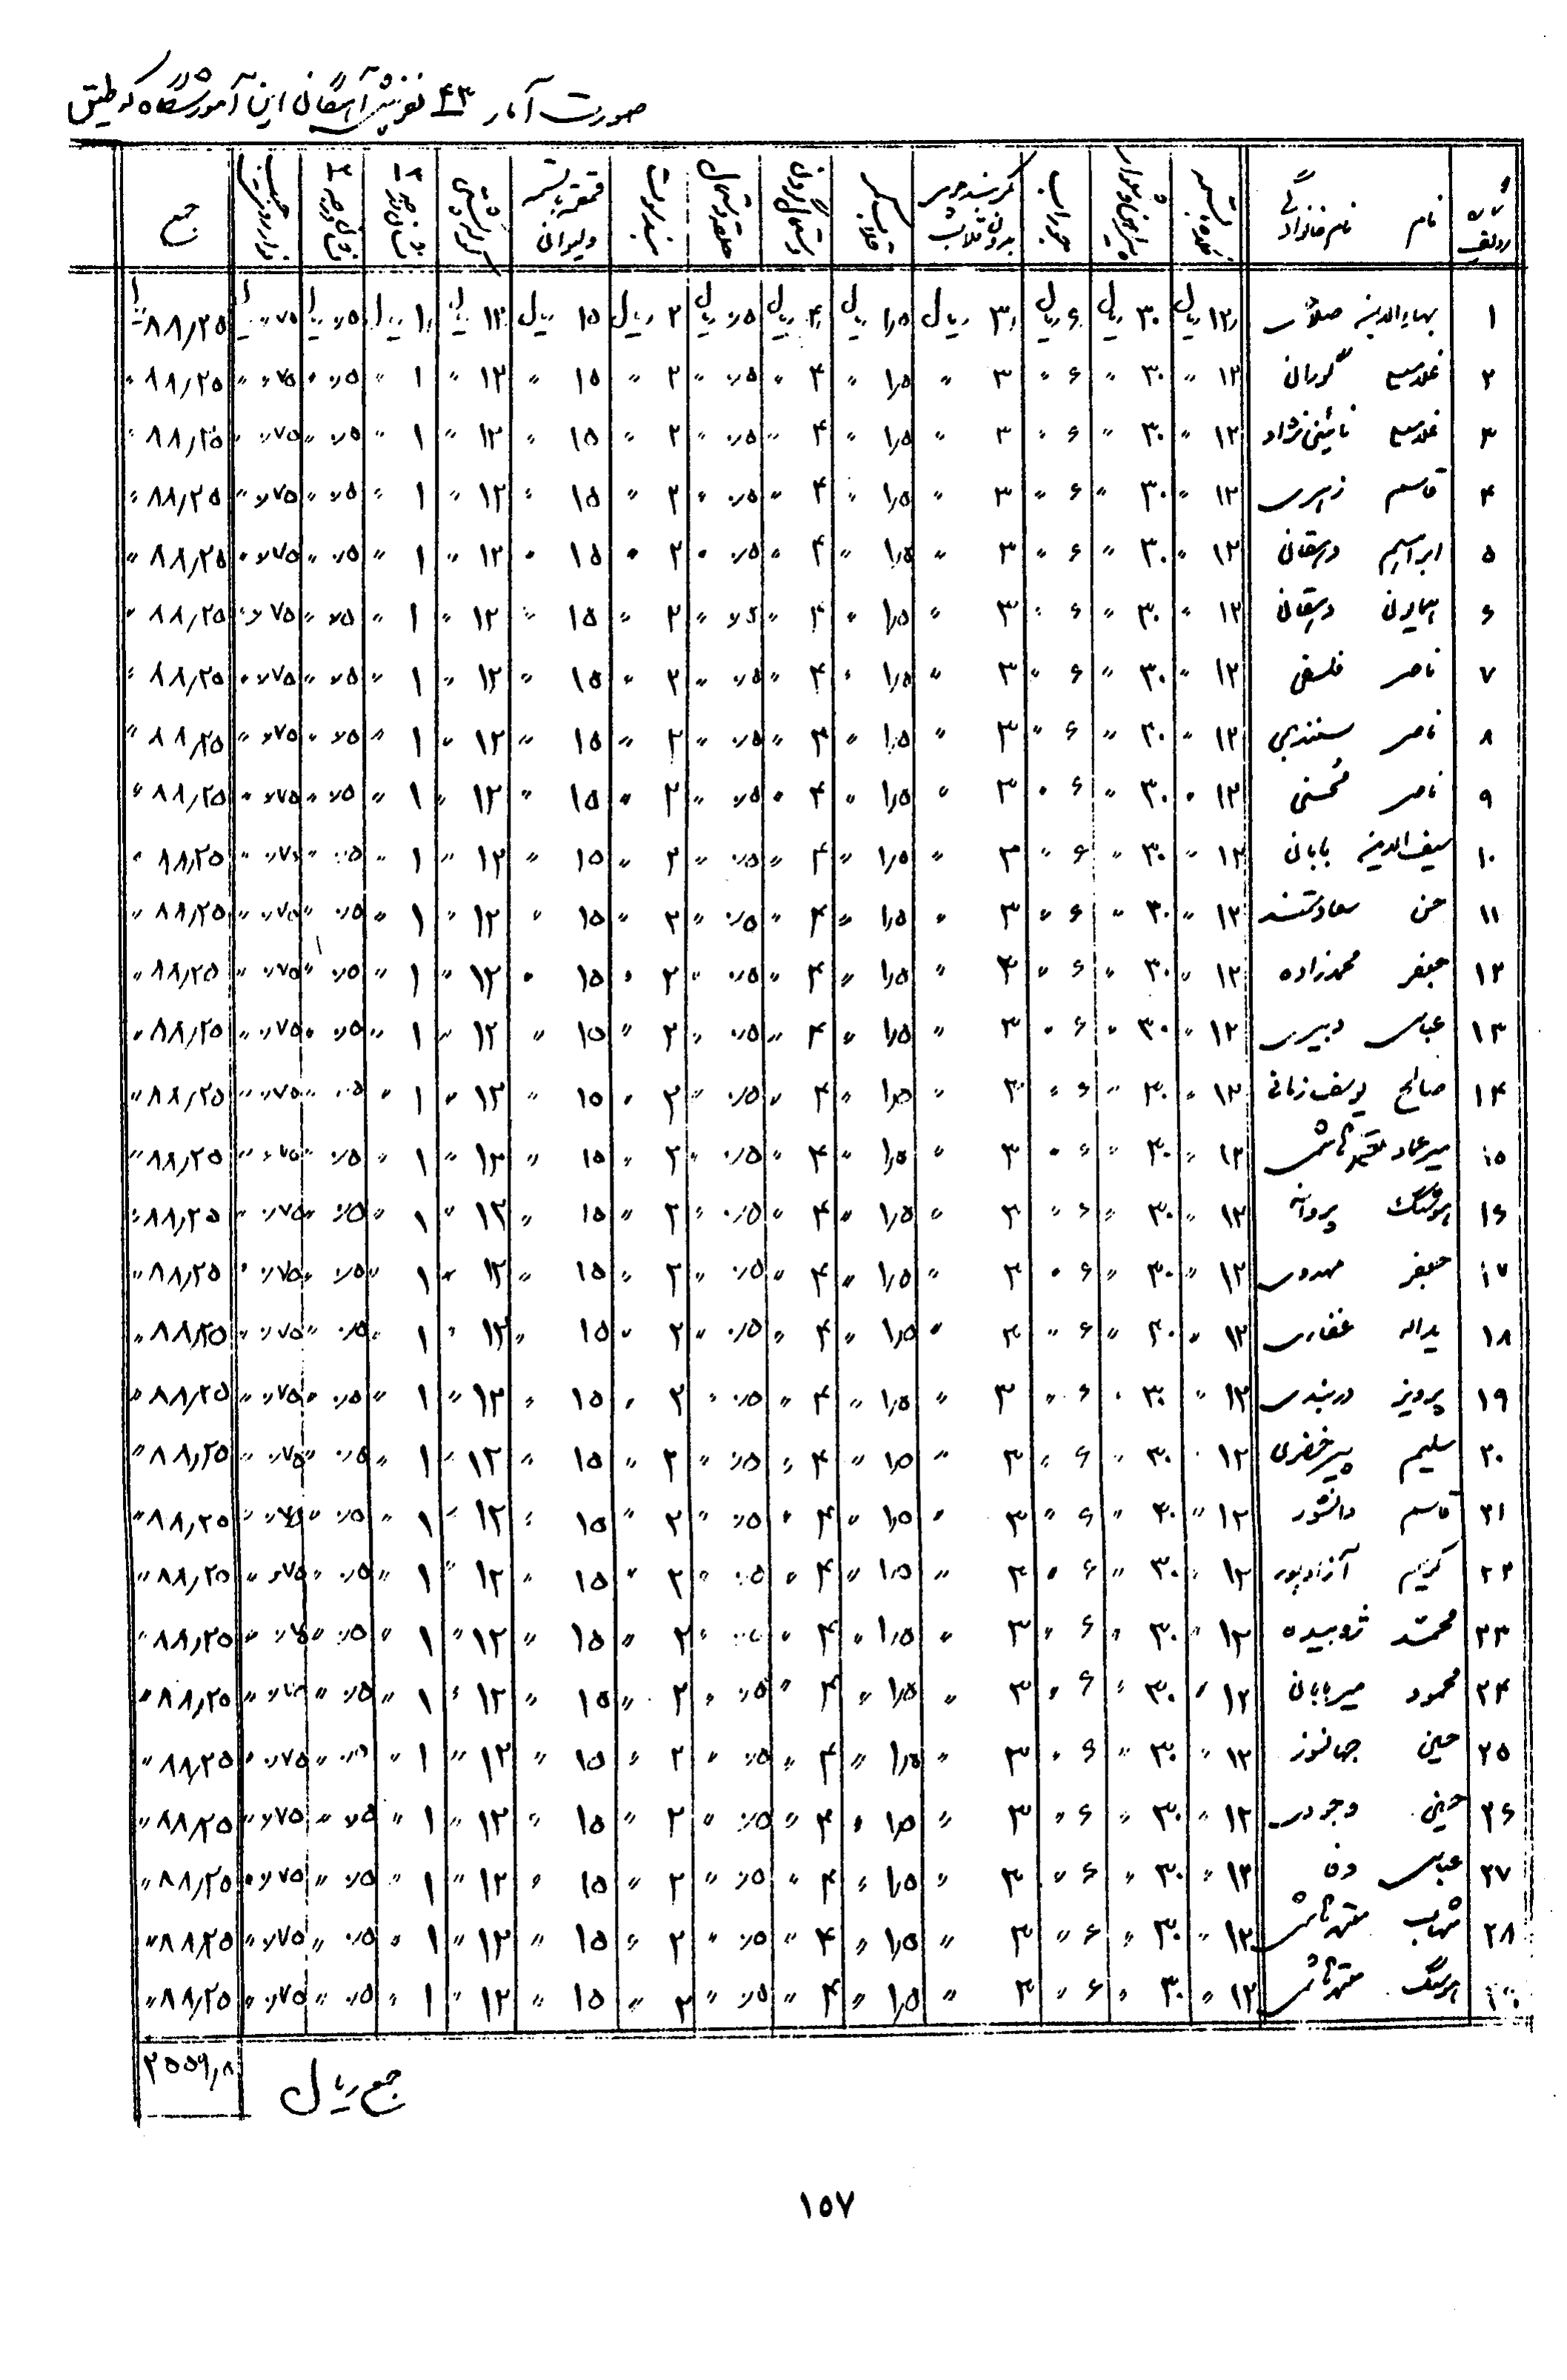 صورت آمار ۴۳ نفر پیش آهنگان این آموزشگاه که طبق
شماره ردیف نام نام خانوادگی پیراهن و شلوار جوراب کمربند چرمی بدون قلاب قلاب کمر دستمال گردن حلقه دستمال سوت قمقمه با تسمه و لیوان جمع
۱ بهاءالدینه ۱۲ ریال ۳۰ ریال ۶ ریال ۳ ریال ۱٫۵ ریال ۴ ریال ۰٫۵ ریال ۲ ریال ۱۵ ریال ۱۲ ریال ۱ ریال ۰٫۵ ریال ۰٫۷۵ ۸۸٫۲۵
۲ گورانی ۱۲ " ۳۰ " ۶ " ۳ " ۱٫۵ " ۴ " ۰٫۵ " ۲ " ۱۵ " ۱۲ " ۱ " ۰٫۵ " ۰٫۷۵ " ۸۸٫۲۵ "
۳ نائینی نژاد ۱۲ " ۳۰ " ۶ " ۳ " ۱٫۵ " ۴ " ۰٫۵ " ۲ " ۱۵ " ۱۲ " ۱ " ۰٫۵ " ۰٫۷۵ " ۸۸٫۲۵ "
۴ قاسم زهیری ۱۲ " ۳۰ " ۶ " ۳ " ۱٫۵ " ۴ " ۰٫۵ " ۲ " ۱۵ " ۱۲ " ۱ " ۰٫۵ " ۰٫۷۵ " ۸۸٫۲۵ "
۵ ابراهیم دهقانی ۱۲ " ۳۰ " ۶ " ۳ " ۱٫۵ " ۴ " ۰٫۵ " ۲ " ۱۵ " ۱۲ " ۱ " ۰٫۵ " ۰٫۷۵ " ۸۸٫۲۵ "
۶ همایون دهقانی ۱۲ " ۳۰ " ۶ " ۳ " ۱٫۵ " ۴ " ۰٫۵ " ۲ " ۱۵ " ۱۲ " ۱ " ۰٫۵ " ۰٫۷۵ " ۸۸٫۲۵ "
۷ ناصر فلسفی ۱۲ " ۳۰ " ۶ " ۳ " ۱٫۵ " ۴ " ۰٫۵ " ۲ " ۱۵ " ۱۲ " ۱ " ۰٫۵ " ۰٫۷۵ " ۸۸٫۲۵ "
۸ ناصر سنندجی ۱۲ " ۳۰ " ۶ " ۳ " ۱٫۵ " ۴ " ۰٫۵ " ۲ " ۱۵ " ۱۲ " ۱ " ۰٫۵ " ۰٫۷۵ " ۸۸٫۲۵ "
۹ ناصر مُحسنی ۱۲ " ۳۰ " ۶ " ۳ " ۱٫۵ " ۴ " ۰٫۵ " ۲ " ۱۵ " ۱۲ " ۱ " ۰٫۵ " ۰٫۷۵ " ۸۸٫۲۵ "
۱۰ سیف الدینه بابانی ۱۲ " ۳۰ " ۶ " ۳ " ۱٫۵ " ۴ " ۰٫۵ " ۲ " ۱۵ " ۱۲ " ۱ " ۰٫۵ " ۰٫۷۵ " ۸۸٫۲۵ "
۱۱ حسن سعادتمند ۱۲ " ۳۰ " ۶ " ۳ " ۱٫۵ " ۴ " ۰٫۵ " ۲ " ۱۵ " ۱۲ " ۱ " ۰٫۵ " ۰٫۷۵ " ۸۸٫۲۵ "
۱۲ جعفر محمدزاده ۱۲ " ۳۰ " ۶ " ۳ " ۱٫۵ " ۴ " ۰٫۵ " ۲ " ۱۵ " ۱۲ " ۱ " ۰٫۵ " ۰٫۷۵ " ۸۸٫۲۵ "
۱۳ عباس دبیری ۱۲ " ۳۰ " ۶ " ۳ " ۱٫۵ " ۴ " ۰٫۵ " ۲ " ۱۵ " ۱۲ " ۱ " ۰٫۵ " ۰٫۷۵ " ۸۸٫۲۵ "
۱۴ صالح یوسف زمانی ۱۲ " ۳۰ " ۶ " ۳ " ۱٫۵ " ۴ " ۰٫۵ " ۲ " ۱۵ " ۱۲ " ۱ " ۰٫۵ " ۰٫۷۵ " ۸۸٫۲۵ "
۱۵ میرعماد ۱۲ " ۳۰ " ۶ " ۳ " ۱٫۵ " ۴ " ۰٫۵ " ۲ " ۱۵ " ۱۲ " ۱ " ۰٫۵ " ۰٫۷۵ " ۸۸٫۲۵ "
۱۶ هوشنگ پروانه ۱۲ " ۳۰ " ۶ " ۳ " ۱٫۵ " ۴ " ۰٫۵ " ۲ " ۱۵ " ۱۲ " ۱ " ۰٫۵ " ۰٫۷۵ " ۸۸٫۲۵ "
۱۷ جعفر مهدوی ۱۲ " ۳۰ " ۶ " ۳ " ۱٫۵ " ۴ " ۰٫۵ " ۲ " ۱۵ " ۱۲ " ۱ " ۰٫۵ " ۰٫۷۵ " ۸۸٫۲۵ "
۱۸ یداله غفاری ۱۲ " ۳۰ " ۶ " ۳ " ۱٫۵ " ۴ " ۰٫۵ " ۲ " ۱۵ " ۱۲ " ۱ " ۰٫۵ " ۰٫۷۵ " ۸۸٫۲۵ "
۱۹ پرویز دربندی ۱۲ " ۳۰ " ۶ " ۳ " ۱٫۵ " ۴ " ۰٫۵ " ۲ " ۱۵ " ۱۲ " ۱ " ۰٫۵ " ۰٫۷۵ " ۸۸٫۲۵ "
۲۰ سلیم پیرخضری ۱۲ " ۳۰ " ۶ " ۳ " ۱٫۵ " ۴ " ۰٫۵ " ۲ " ۱۵ " ۱۲ " ۱ " ۰٫۵ " ۰٫۷۵ " ۸۸٫۲۵ "
۲۱ قاسم دانشور ۱۲ " ۳۰ " ۶ " ۳ " ۱٫۵ " ۴ " ۰٫۵ " ۲ " ۱۵ " ۱۲ " ۱ " ۰٫۵ " ۰٫۷۵ " ۸۸٫۲۵ "
۲۲ کریم آزادپور ۱۲ " ۳۰ " ۶ " ۳ " ۱٫۵ " ۴ " ۰٫۵ " ۲ " ۱۵ " ۱۲ " ۱ " ۰٫۵ " ۰٫۷۵ " ۸۸٫۲۵ "
۲۳ محمّد ژوبیده ۱۲ " ۳۰ " ۶ " ۳ " ۱٫۵ " ۴ " ۲ " ۱۵ " ۱۲ " ۱ " ۰٫۵ " ۰٫۷۵ " ۸۸٫۲۵ "
۲۴ محمود میربابانی ۱۲ " ۳۰ " ۶ " ۳ " ۱٫۵ " ۴ " ۰٫۵ " ۲ " ۱۵ " ۱۲ " ۱ " ۰٫۵ " ۰٫۷۵ " ۸۸٫۲۵ "
۲۵ حسین جهانسوز ۱۲ " ۳۰ " ۶ " ۳ " ۱٫۵ " ۴ " ۰٫۵ " ۲ " ۱۵ " ۱۲ " ۱ " ۰٫۵ " ۰٫۷۵ " ۸۸٫۲۵ "
۲۶ حسین وجودی ۱۲ " ۳۰ " ۶ " ۳ " ۱٫۵ " ۴ " ۰٫۵ " ۲ " ۱۵ " ۱۲ " ۱ " ۰٫۵ " ۰٫۷۵ " ۸۸٫۲۵ "
۲۷ عباس ۱۲ " ۳۰ " ۶ " ۳ " ۱٫۵ " ۴ " ۰٫۵ " ۲ " ۱۵ " ۱۲ " ۱ " ۰٫۵ " ۰٫۷۵ " ۸۸٫۲۵ "
۲۸ شهاب ۱۲ " ۳۰ " ۶ " ۳ " ۱٫۵ " ۴ " ۰٫۵ " ۲ " ۱۵ " ۱۲ " ۱ " ۰٫۵ " ۰٫۷۵ " ۸۸٫۲۵ "
هوشنگ ۱۲ " ۳۰ " ۶ " ۳ " ۱٫۵ " ۴ " ۰٫۵ " ۲ " ۱۵ " ۱۲ " ۱ " ۰٫۵ " ۰٫۷۵ " ۸۸٫۲۵ "
جمع ریال ۲۵۵۹٫۸
۱۵۷